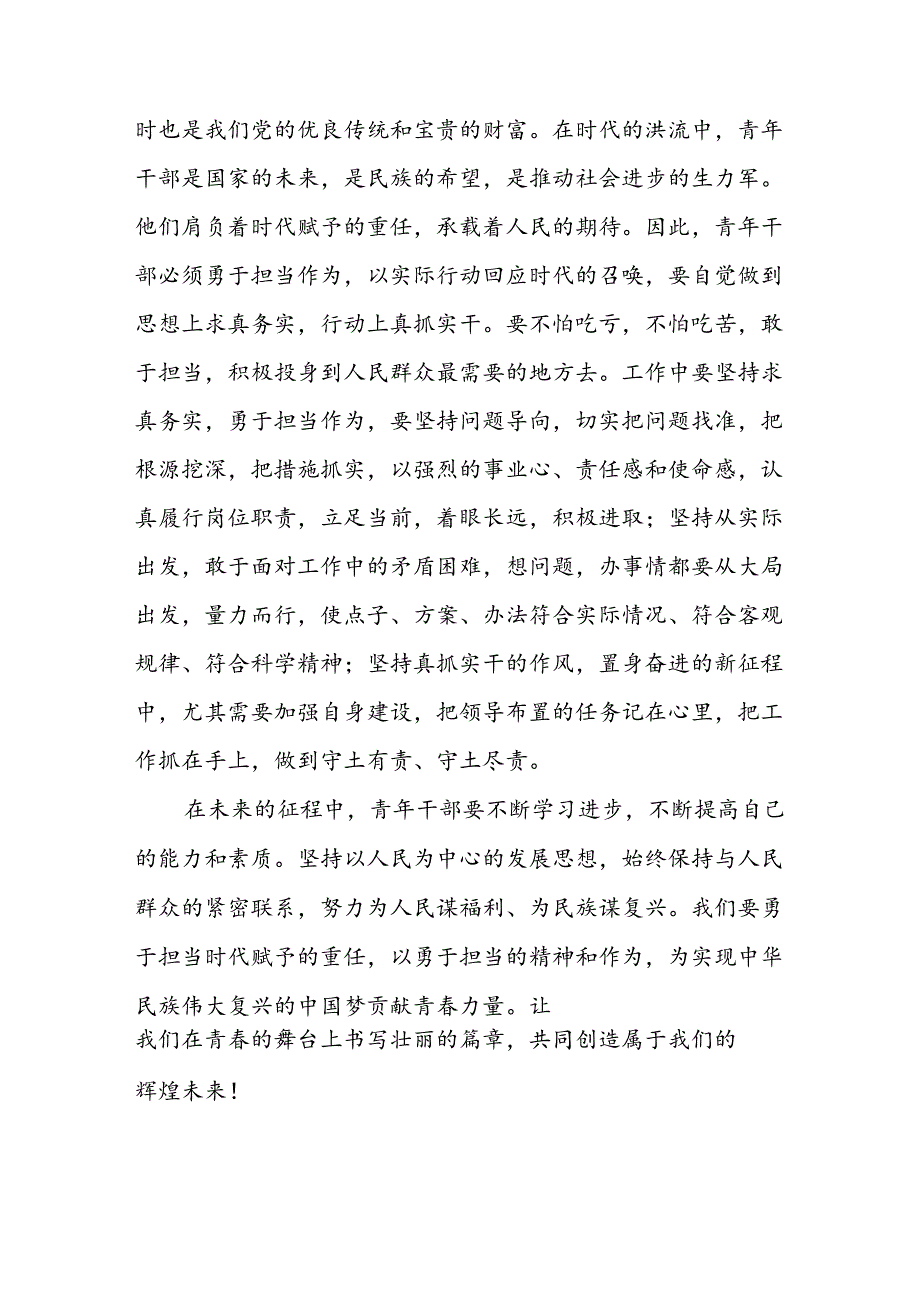 时也是我们党的优良传统和宝贵的财富。在时代的洪流中，青年
干部是国家的未来，是民族的希望，是推动社会进步的生力军。
他们肩负着时代赋予的重任，承载着人民的期待。因此，青年干
部必须勇于担当作为，以实际行动回应时代的召唤，要自觉做到
思想上求真务实，行动上真抓实干。要不怕吃亏，不怕吃苦，敢
于担当，积极投身到人民群众最需要的地方去。工作中要坚持求
真务实，勇于担当作为，要坚持问题导向，切实把问题找准，把
根源挖深，把措施抓实，以强烈的事业心、责任感和使命感，认
真履行岗位职责，立足当前，着眼长远，积极进取；坚持从实际
出发，敢于面对工作中的矛盾困难，想问题，办事情都要从大局
出发，量力而行，使点子、方案、办法符合实际情况、符合客观
规律、符合科学精神；坚持真抓实干的作风，置身奋进的新征程
中，尤其需要加强自身建设，把领导布置的任务记在心里，把工
作抓在手上，做到守土有责、守土尽责。
在未来的征程中，青年干部要不断学习进步，不断提高自己
的能力和素质。坚持以人民为中心的发展思想，始终保持与人民
群众的紧密联系，努力为人民谋福利、为民族谋复兴。我们要勇
于担当时代赋予的重任，以勇于担当的精神和作为，为实现中华
民族伟大复兴的中国梦贡献青春力量。让
我们在青春的舞台上书写壮丽的篇章，共同创造属于我们的
辉煌未来！